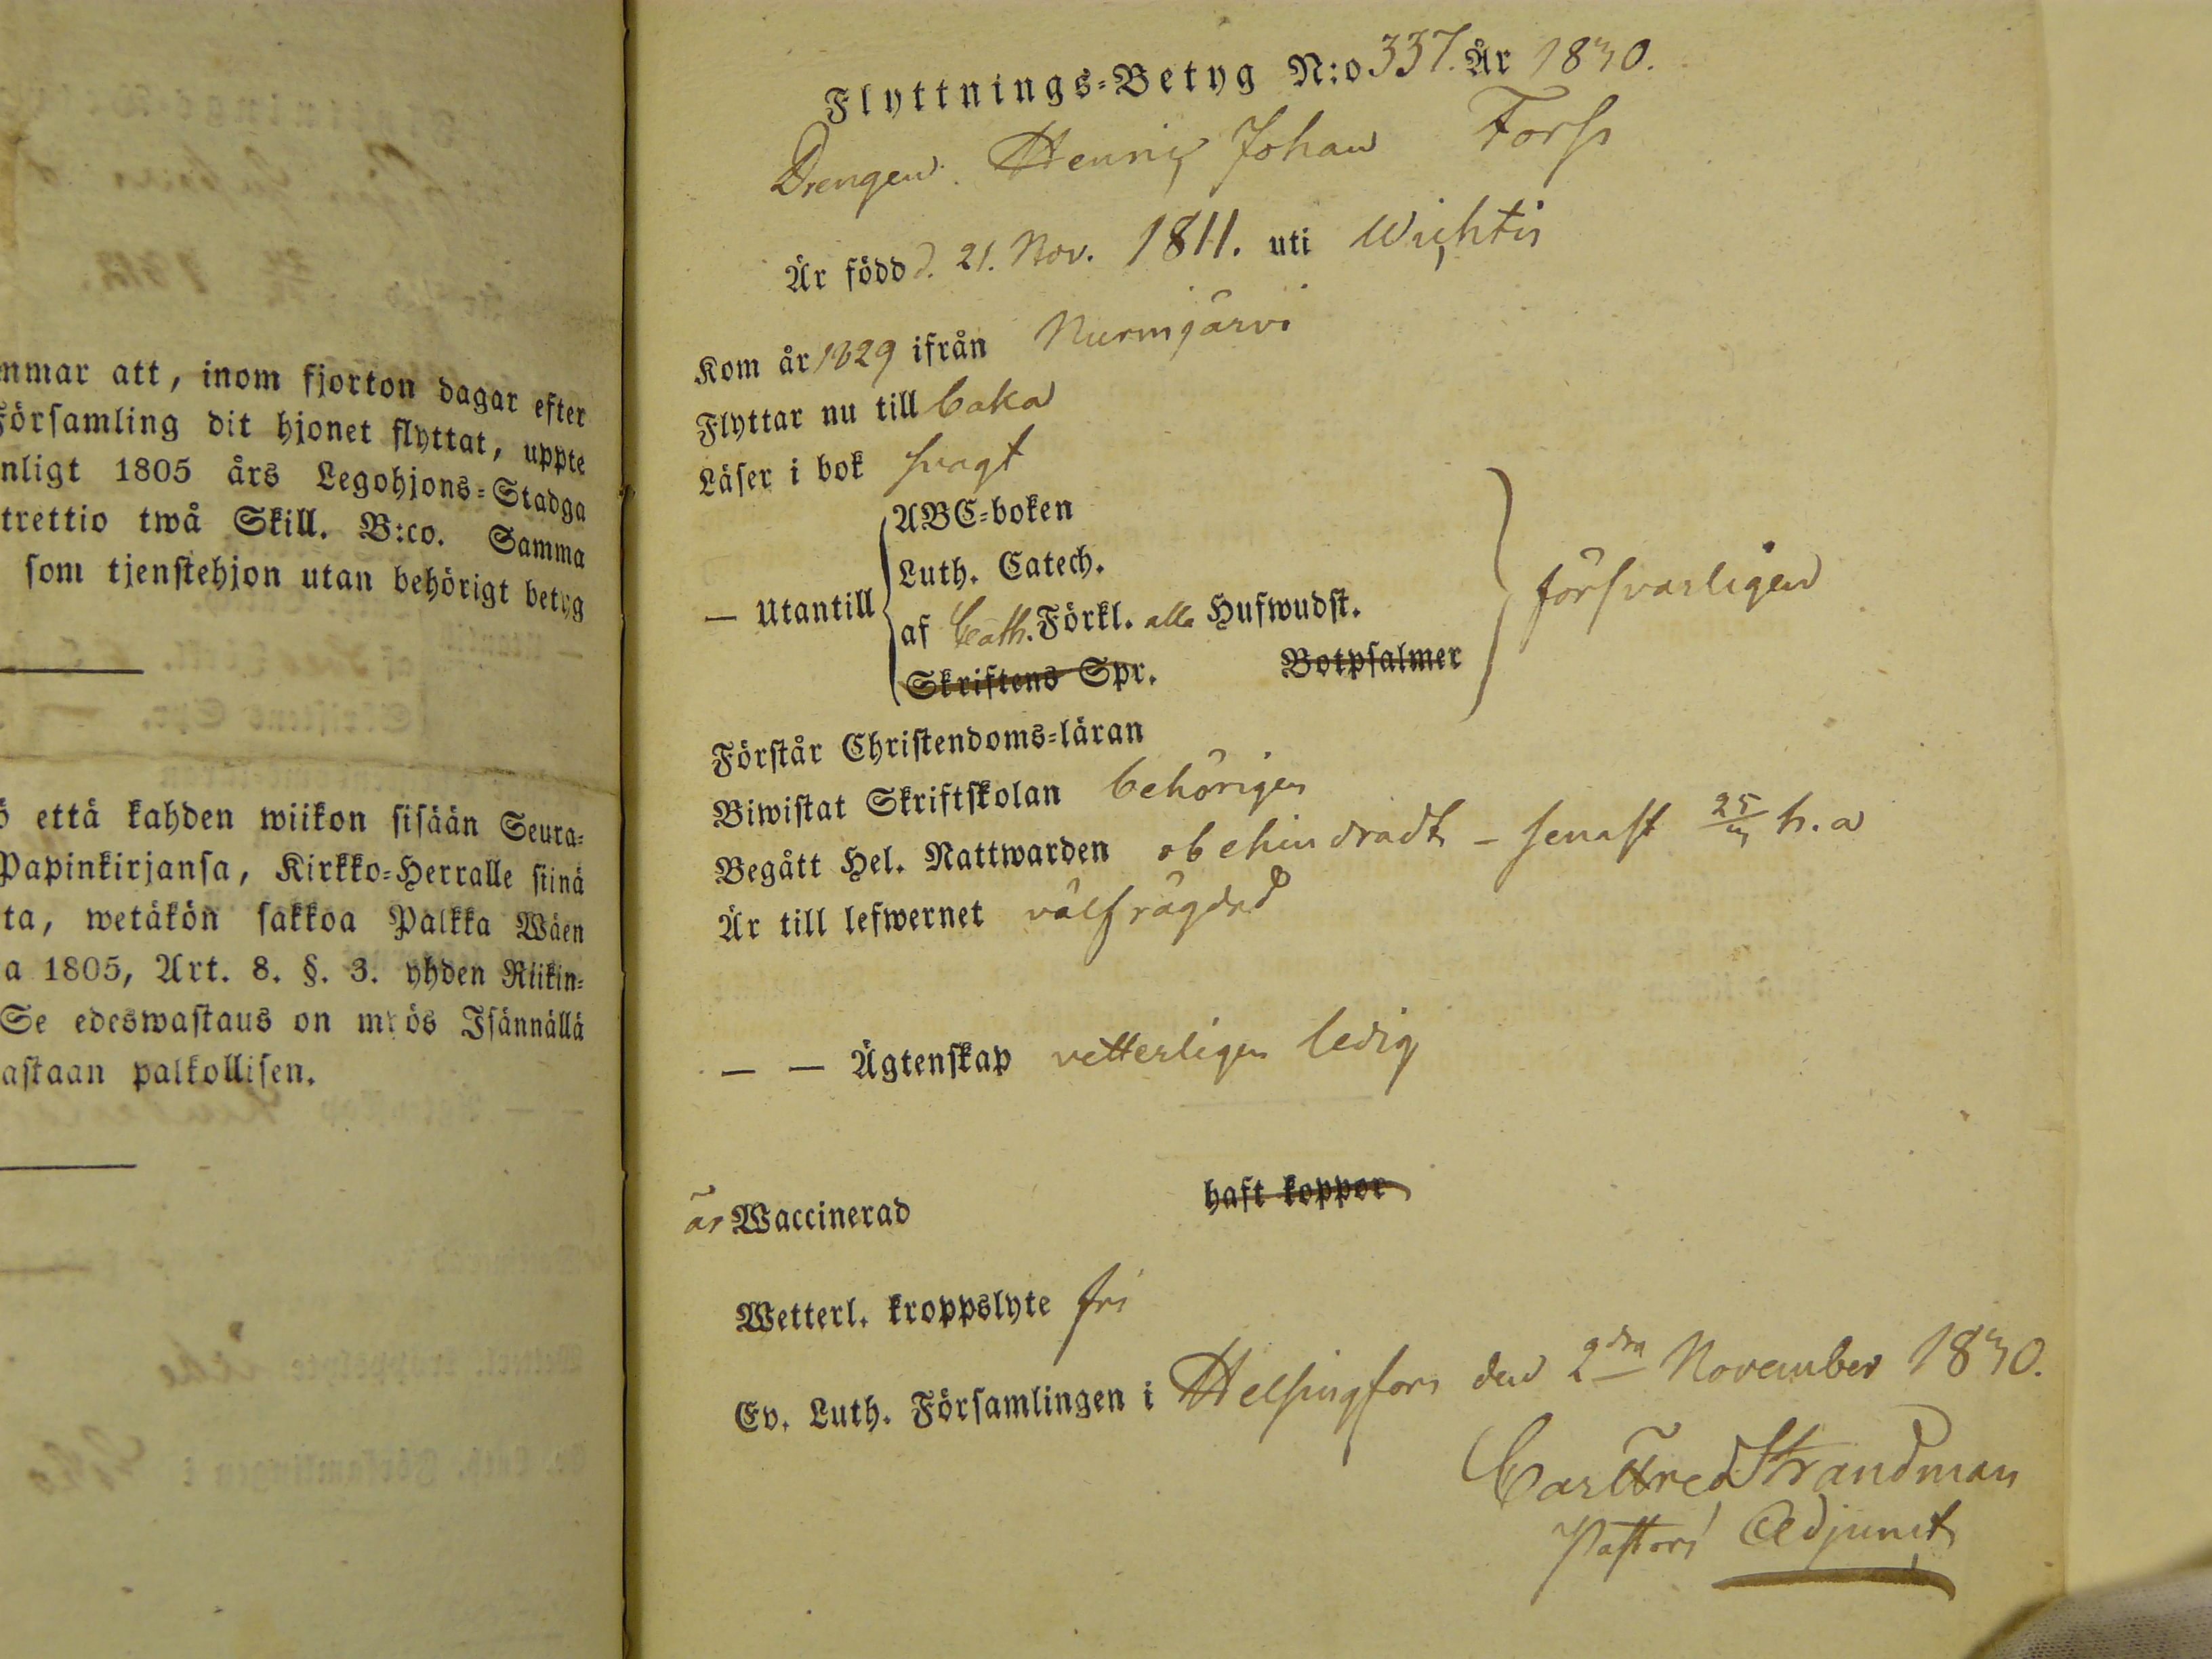 mmar att, inom fjorton dagar efter
Församling dit hjonet flyttat, uppte
nligt 1805 års Legohjons=Stadga
trettio twå Skill. B:co. Samma
som tjenstehjon utan behörigt betyg
ö että kahden wiikon sisään Seura=
Papinkirjansa, Kirkko=Herralle siinä
ta, wetäkön sakkoa Palkka Wäen
a 1805, Art. 8. §. 3. yhden Riikin=
Se edeswastaus on myös Isännällä
astaan palkollisen.
Flyttnings=Betyg N:o 337. År 1830.
Drengen Henric Johan Forss
Är född d. 21. Nov. 1811. uti Wichtis
Kom år 1829 ifrån Nurmijärvi
Flyttar nu till baka
Läser i bok svagt
— Utantill
ABC=boken
Luth. Catech.
af Cath. Förkl. alla Hufwudst.
Skriftens Spr. Botpsalmer
försvarligen
Förstår Christendoms=läran
Biwistat Skriftskolan behörigen
Begått Hel. Nattwarden obehindradt – senast 25 h. a
Är till lefwernet välfrägdad
— — Ägtenskap vetterligen ledig
är Waccinerad haft koppor
Wetterl. kroppslyte fri
Ev. Luth. Församlingen i Helsingfors den 2dra November 1830.
Carl Fred Strandman
Pastors Adjunct